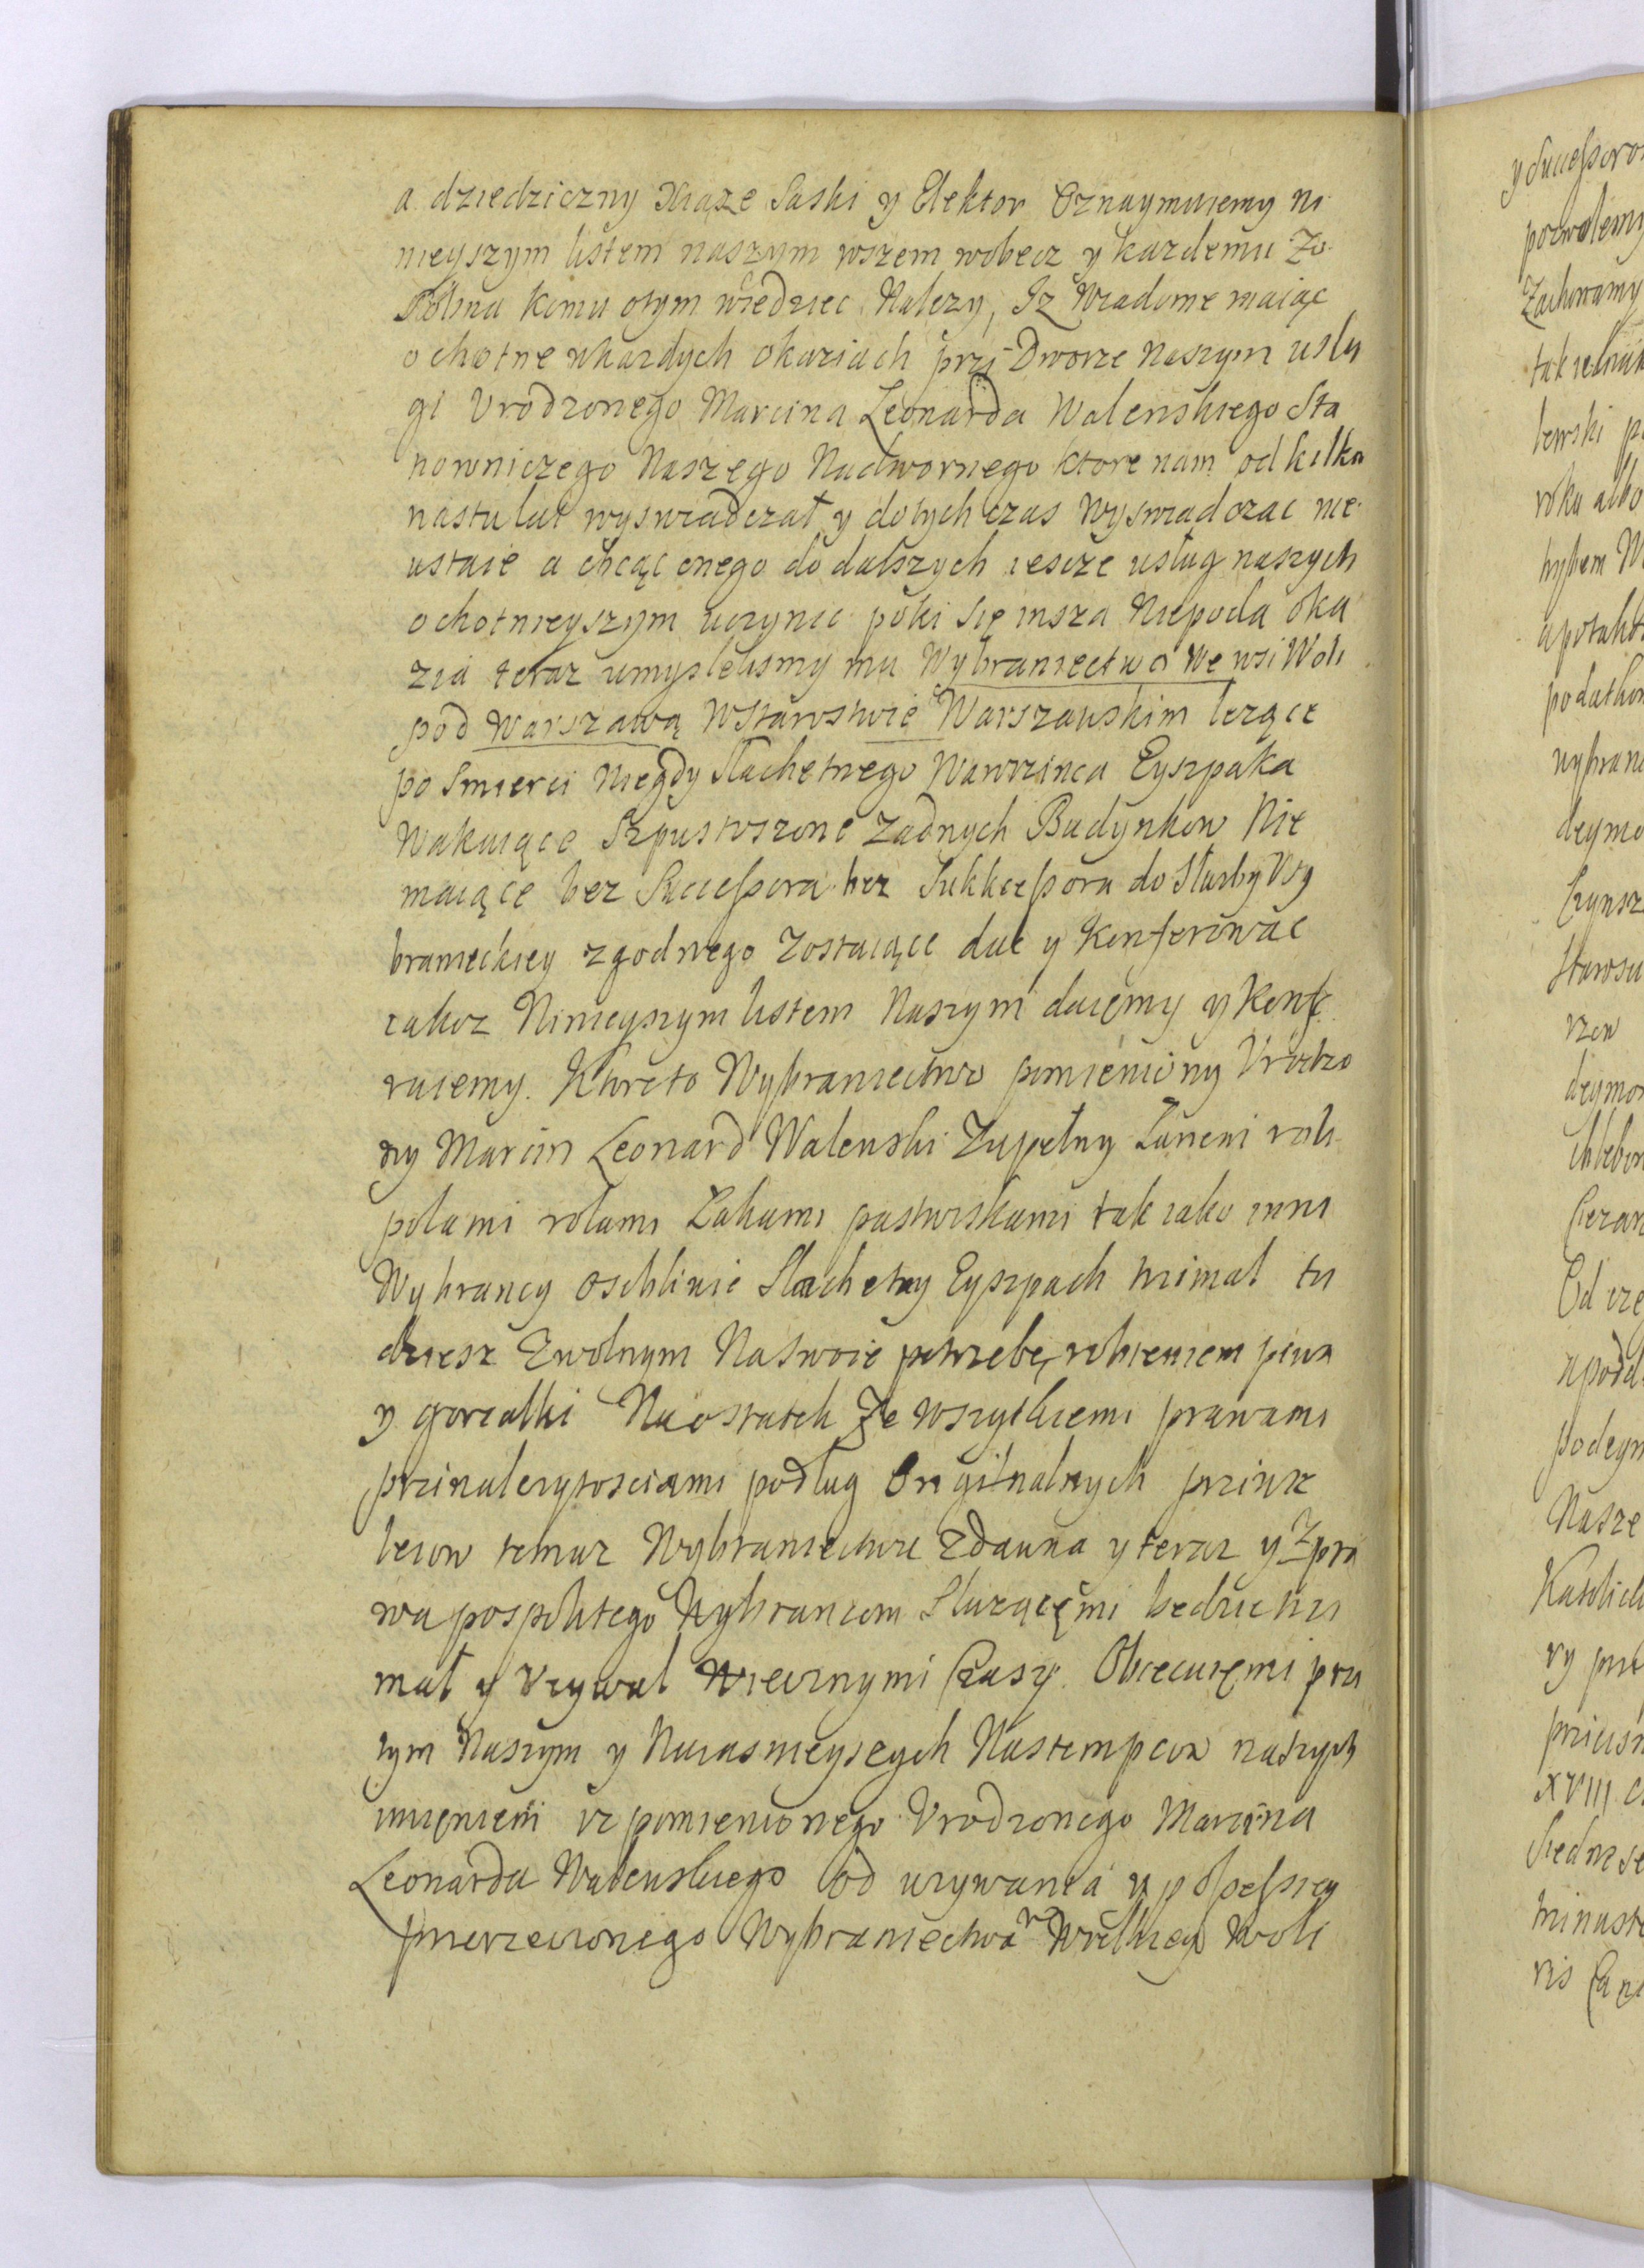 a dziedziczny Xiąze Saski y Elektor Oznaymuiemy ni
nieyszym listem naszym wszem wobecz y kazdemu Zo
sobna komu otym wiedziec Nalezy, Iz Wiadome maiąc
ochotne wkazdych okaziach przi Dworze Naszym uslu
gi Vrodzonego Marcina Leonarda Walenskiego Sta
nowniczego Naszego Nadwornego ktore nam od kilka
nastu lat wyswiadczał y dotychczas Wyswiadczac nie
ustaie a chcąc onego do dalszych iescze usług naszych
ochotnieyszym uczynic poki się insza Niepoda oka
zia teraz umyslelismy mu Wybraniectwo We wsi Woli
pod Warszawą WStarostwie Warszawskim lezące
po Smierci Niegdy Slachetnego Wawrzinca Eyszpaka
Wakuiące Szpustoszone zadnych Budynkow Nie
maiące bez Successora bez Sukkcessora do Sluzby Wy
branieckiey zgodnego zostaiące dac y Konferowac
iakoz Ninieyszym listem Naszym daięmy y Konfe
ruiemy. Ktoreto Wybraniectwo pomieniony Vrodzo
ny Marcin Leonard Walenski Zupełny Łanem roli
polami rolami Łakami pastwiskami tak iako inni
Wybrancy osoblinie Slachetny Eyszpach trzimal tu
dziesz Zwolnym Naswoie potrzebę robieniem piwa
y gorzalki Naostatek Ze wszytkiemi prawami
przinalezytosciami podług Originalnych prziwi
leiow temuz Wybraniectwu zdawna y teraz y Zpra
wa pospolitego Wybrancom Sluząc<unclear>ę</unclear>mi bedzie trzi
mał y Vzywal Wiecznymi Czasy. Obiecuięmi przi
tym Naszym y Naiasnieyszych Nastempcow naszych
imięniem iz pomienionego Vrodzonego Marcina
Leonarda Walenskiego od uzywania y possessiey
pomerzecionego Wybraniectwa w Wielkiey Woli
y Successorom
pozwolemy
Zachowamy
tak iednak
lewski po
roku albo
trybem W
podatkow
wybrane
deymo
Czynsz
Starosci
rzow
deymo
chlebow
Od
podeym
Nasze
Katolick
ry prze
XVIII
Siedmse
trinaste
ris